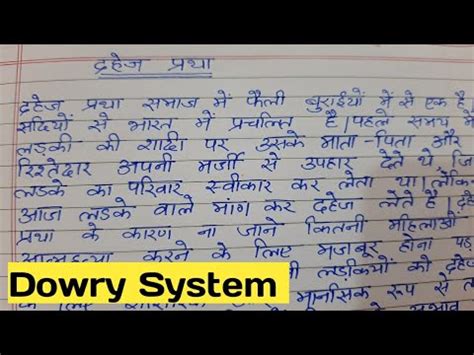 दहेज प्रथा
दहेज प्रथा समाज में फैली बुराईयों में से एक है
सदियों से भारत में प्रचलित है। पहले समय में
लड़की की शादी पर उसके माता-पिता और
रिश्तेदार अपनी मर्जी से उपहार देते थे, जि
लड़के का परिवार स्वीकार कर लेता था। लेकि
आज लड़के वाले मांग कर दहेज लेते है।
प्रथा के कारण ना जाने कितनी महिलाओं
आत्महत्या करने के लिए मजबूर होना
लड़कियों को दहेज
मानसिक रूप से
Dowry System